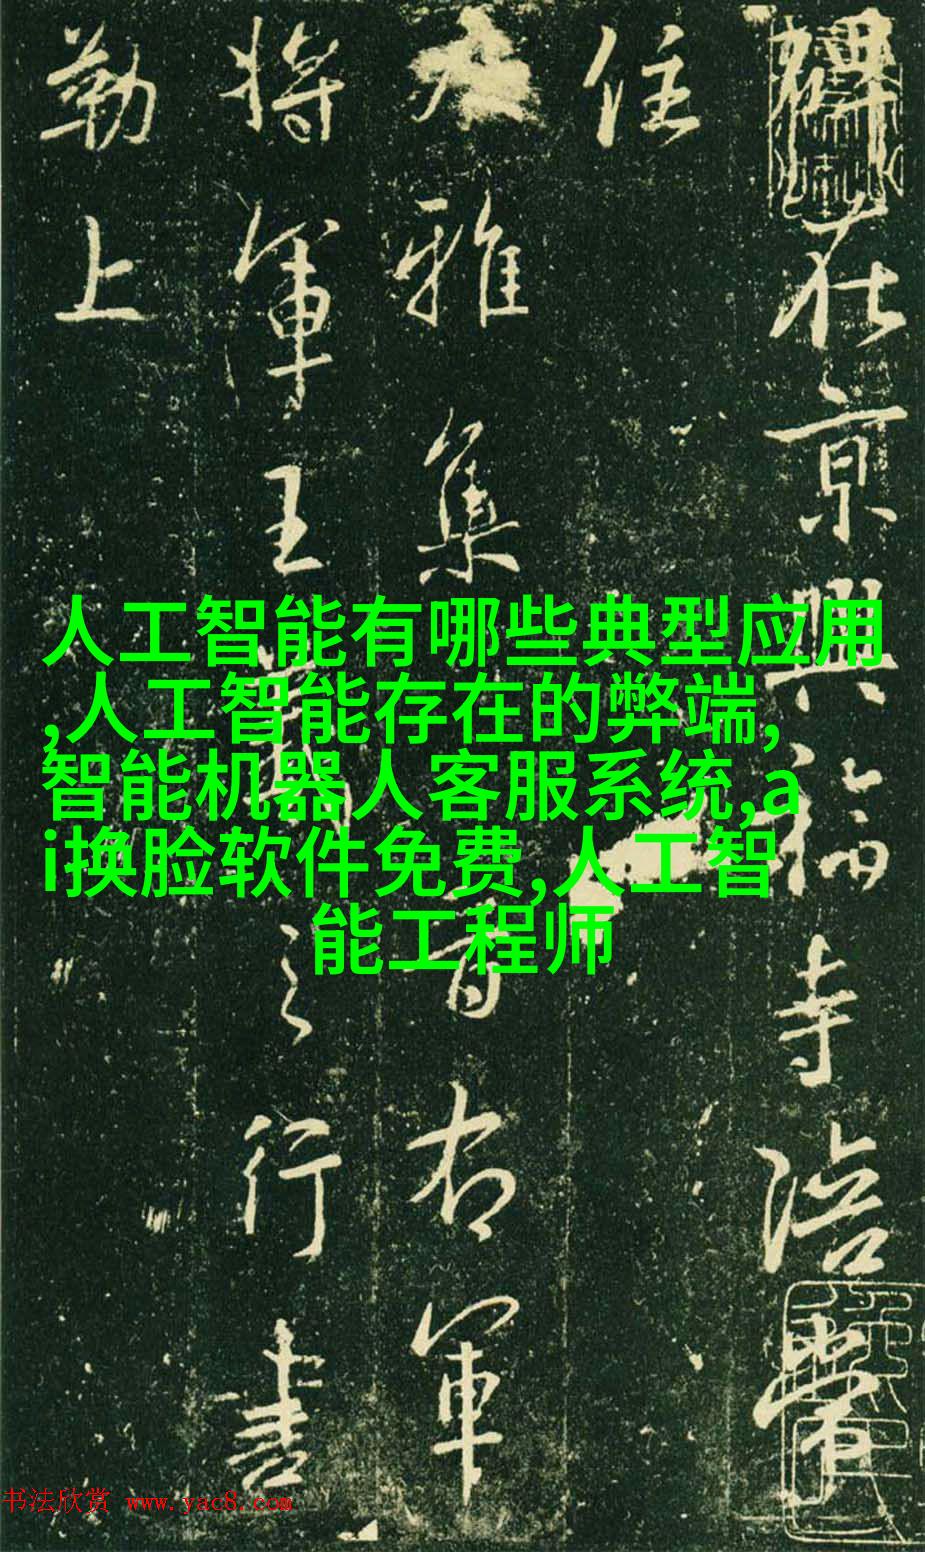 碑在京興福寺陪常
住
大雅集晉右軍
將軍王羲之行書
勒上
人工智能有哪些典型应用
,人工智能存在的弊端,
智能机器人客服系统,a
i换脸软件免费,人工智
能工程师
书法欣赏 www.yac8.com